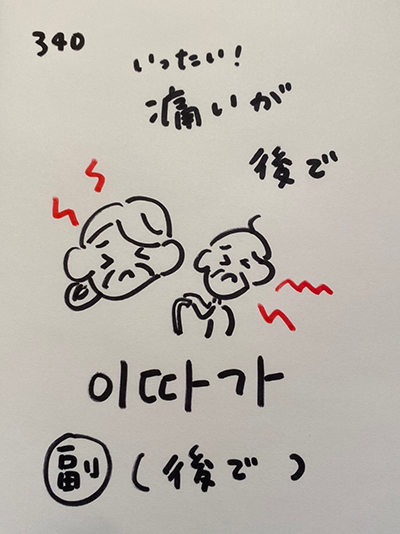 340
いったい!
痛いが
後で
이따가
副 (後で)